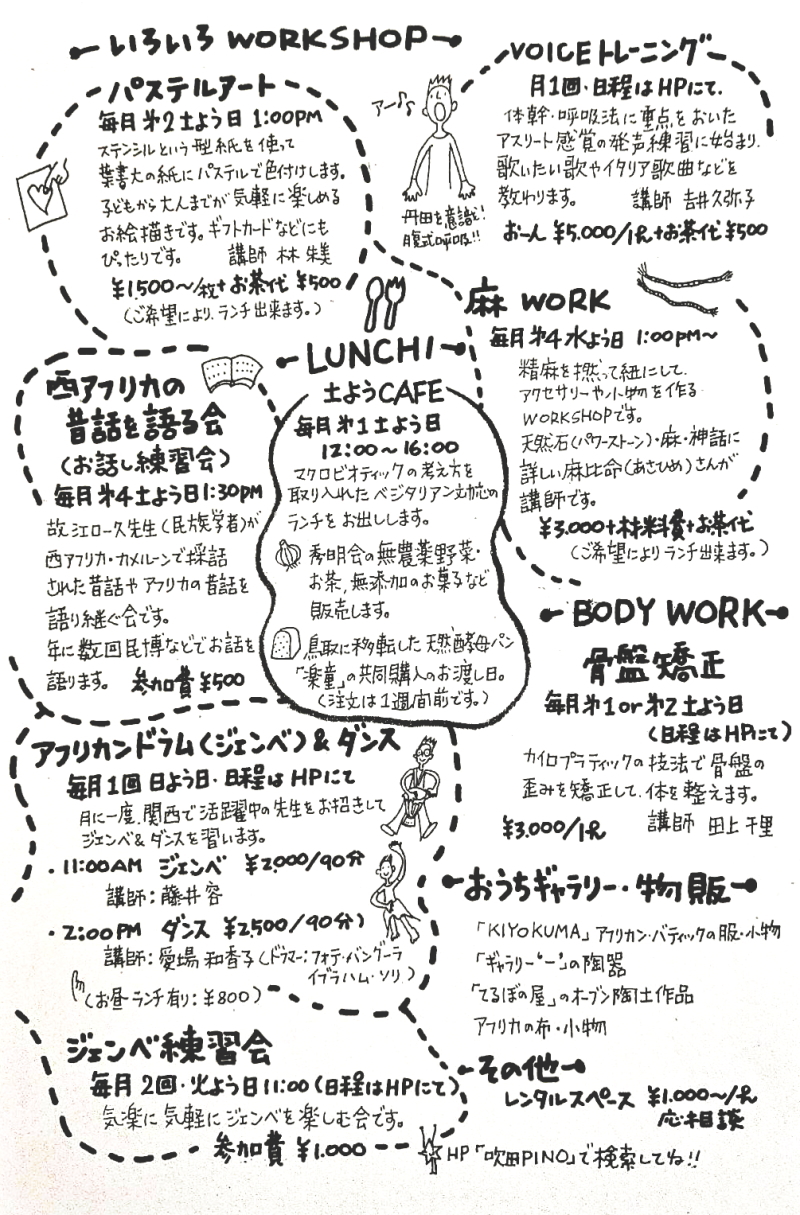 いろいろ WORKSHOP
パステルアート
毎月第2土よう日 1:00PM
ステンシルという型紙を使って
葉書大の紙にパステルで色付けします。
子どもから大人までが気軽に楽しめる
お絵描きです。ギフトカードなどにも
ぴったりです。 講師 林 朱美
¥1,500~/枚+お茶代 ¥500
(ご希望により、ランチ出来ます。)
アー♪♪
丹田を意識!
腹式呼吸!!
VOICEトレーニング
月1回・日程はHPにて.
体幹・呼吸法に重点をおいた
アスリート感覚の発声練習に始まり、
歌いたい歌やイタリア歌曲などを
教わります。 講師 吉井久弥子
お一人 ¥5.000/1h+お茶代 ¥500
麻 WORK
毎月第4水よう日 1:00PM~
精麻を撚って紐にして、
アクセサリーや小物を作る
WORKSHOPです。
天然石(パワーストーン)・麻・神話に
詳しい麻比命(あさひめ)さんが
講師です。
¥3.000+材料費+お茶代
(ご希望によりランチ出来ます。)
西アフリカの
昔話を語る会
(お話し練習会)
毎月第4土よう日1:30PM
故江口一久先生(民族学者)が
西アフリカ・カメルーンで採話
された昔話やアフリカの昔話を
語り継ぐ会です。
年に数回民博などでお話を
語ります。 参加費 ¥500
LUNCHI
土ようCAFE
毎月第1土よう日
12:00~16:00
マクロビオティックの考え方を
取り入れたベジタリアン対応の
ランチをお出しします。
秀明会の無農薬野菜・
お茶,無添加のお菓子など
販売します。
鳥取に移転した天然酵母パン
「楽童」の共同購入のお渡し日。
(注文は1週間前です。)
BODY WORK
骨盤矯正
毎月第1or第2土よう日
(日程はHPにて)
カイロプラティックの技法で骨盤の
歪みを矯正して、体を整えます。
¥3.000/1h 講師 田上千里
アフリカンドラム(ジェンベ)&ダンス
毎月1回 日よう日・日程は HPにて
月に一度、関西で活躍中の先生をお招きして
ジェンベ&ダンスを習います。
・11:00AM ジェンベ ¥2,000/90分
講師:藤井容
・2:00PM ダンス ¥2,500/90分)
講師:愛場 和香子(ドラマー:フォデ・バングーラ
イブラハム・ソリ)
(お昼ランチ有り:¥800)
おうちギャラリー・物販
「KIYOKUMA」アフリカン・バティックの服・小物
「ギャラリー‘一’」の陶器
「てるぼの屋」のオーブン陶土作品
アフリカの布・小物
ジェンベ練習会
毎月2回・火よう日11:00(日程はHPにて)
気楽に気軽にジェンベを楽しむ会です。
参加費 ¥1.000
その他
レンタルスペース ¥1.000~/h
応相談
HP「吹田PINO」で検索してね!!